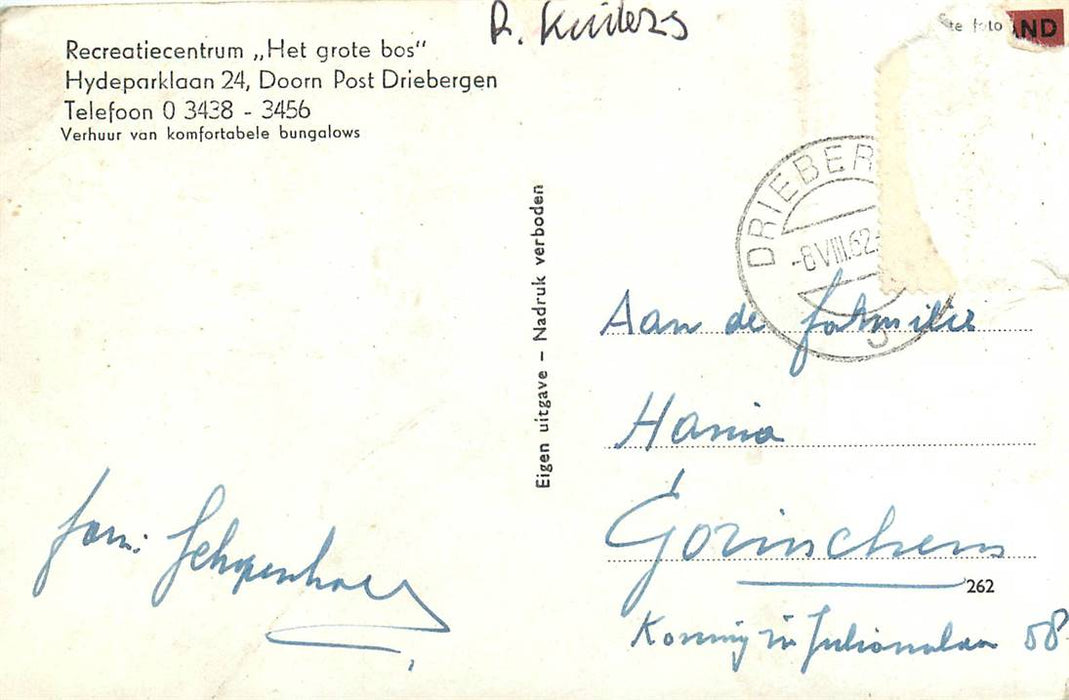 R. Kuilers
Recreatiecentrum „Het grote bos"
Hydeparklaan 24, Doorn Post Driebergen
Telefoon 0 3438 - 3456
Verhuur van komfortabele bungalows
fam: Schopenhauer
Eigen uitgave – Nadruk verboden
te foto
AND
DRIEBER
-8VIII.62.
5
Aan de familie
Hania
Gorinchem
262
Koningin Julianalaan 58